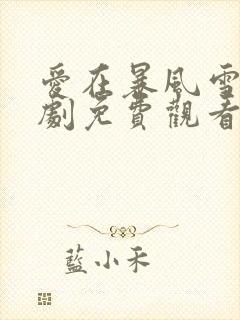 愛在暴風雪
劇免費觀看
藍小禾